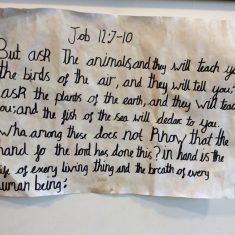 Job 12:7-10
But ask The animals, and they will teach yo
the birds of the air, and they will tell you;
ask the plants of the earth, and they will teac
you; and the fish of the sea will declar to you.
wha among these does not know that the
hand fo the lord has done this? in hand is the
life of every living thing and the breath of every
human being: